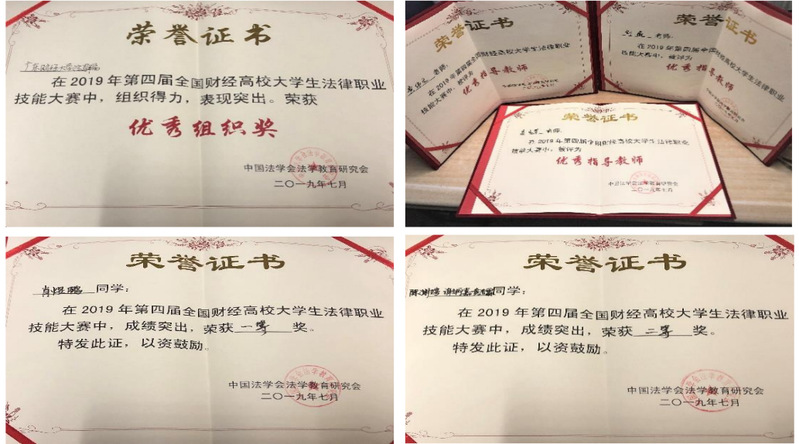 荣誉证书
在2019年第四届全国财经高校大学生法律职业
技能大赛中，组织得力，表现突出。荣获
优秀组织奖
中国法学会法学教育研究会
二〇一九年七月
荣誉证书
老师：
在2019年第四届全国财经高校大学生法律职业
技能大赛中，被评为
优秀指导教师
荣誉证书
老师：
在2019年第四届全国财经高校大学生法律职业
技能大赛中，被评为
优秀指导教师
荣誉证书
老师：
在2019年第四届全国财经高校大学生法律职业
技能大赛中，被评为
优秀指导教师
中国法学会法学教育研究会
二〇一九年七月
荣誉证书
肖煜鹏 同学：
在2019年第四届全国财经高校大学生法律职业
技能大赛中，成绩突出，荣获 一等 奖。
特发此证，以资鼓励。
中国法学会法学教育研究会
二〇一九年七月
荣誉证书
同学：
在2019年第四届全国财经高校大学生法律职业
技能大赛中，成绩突出，荣获 二等 奖。
特发此证，以资鼓励。
中国法学会法学教育研究会
二〇一九年七月